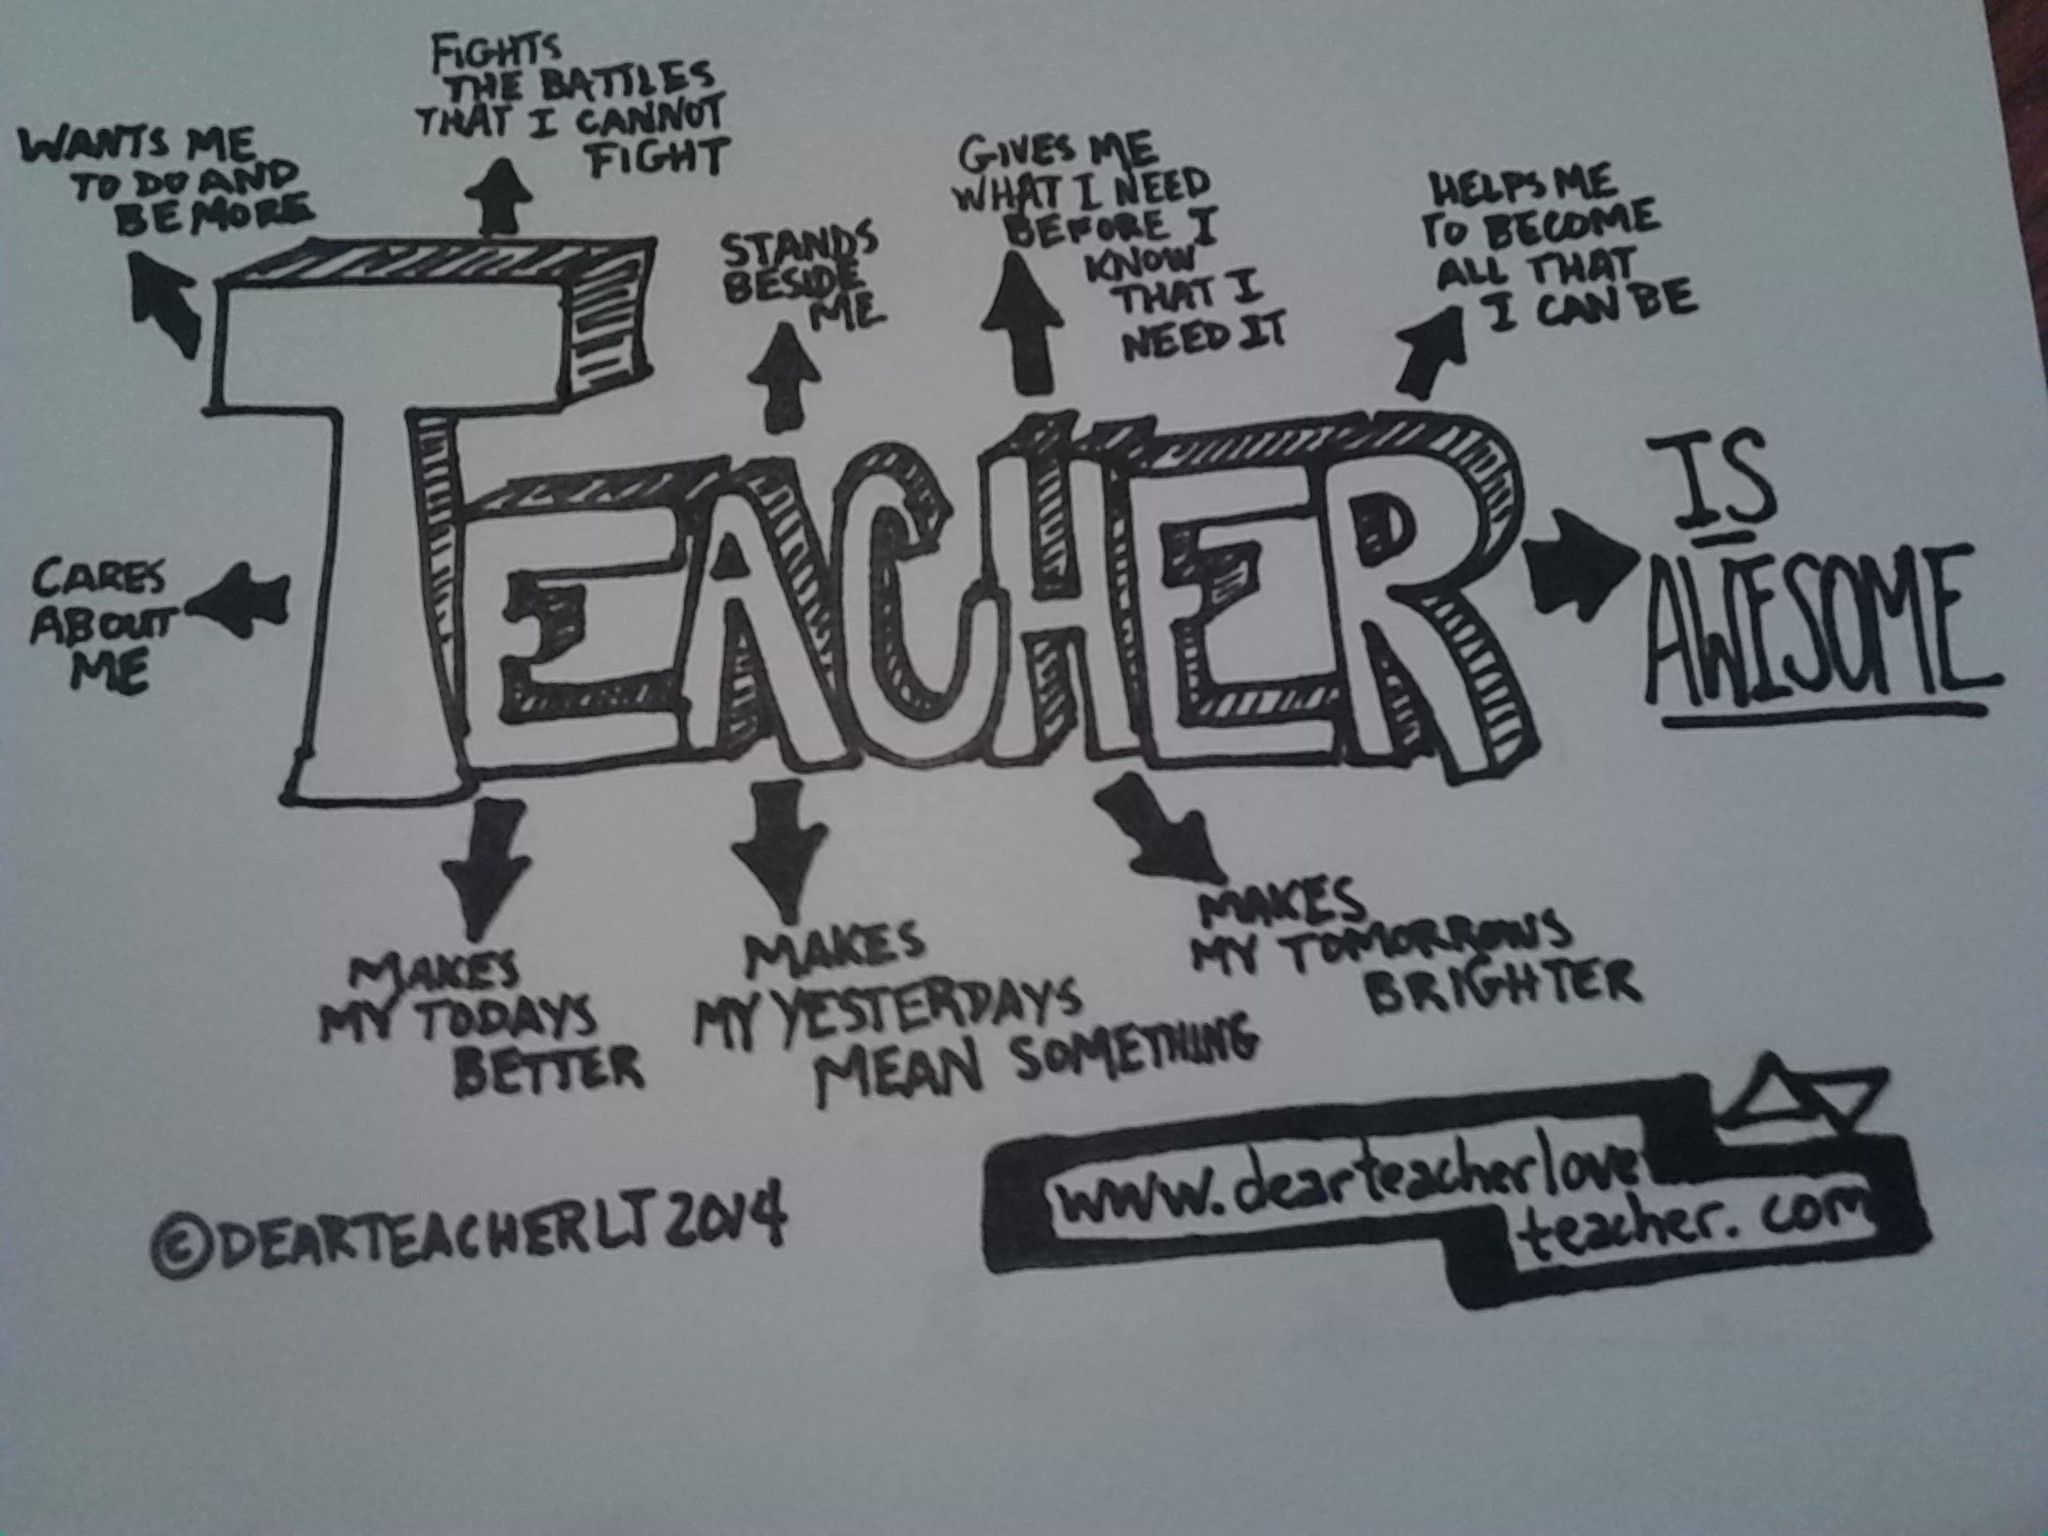 FIGHTS
THE BATTLES
THAT I CANNOT
FIGHT
WANTS ME
TO DO AND
BE MORE
STANDS
BESIDE
ME
GIVES ME
WHAT I NEED
BEFORE I
KNOW
THAT I
NEED IT
HELPS ME
TO BECOME
ALL THAT
I CAN BE
CARES
ABOUT
ME
TEACHER
IS
AWESOME
MAKES
MY TODAYS
BETTER
MAKES
MY YESTERDAYS
MEAN SOMETHING
MAKES
MY TOMORROWS
BRIGHTER
©DEARTEACHERLT 2014
www.dearteacherlove
teacher.com